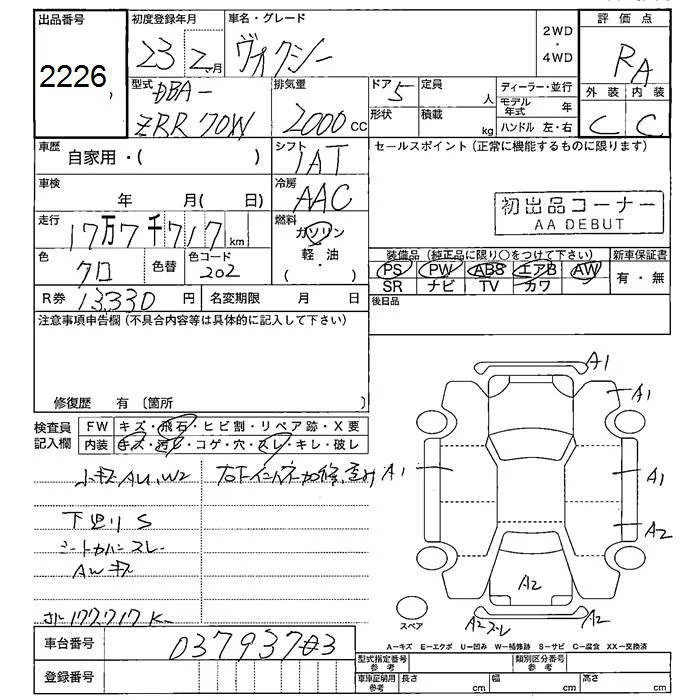 出品番号 初度登録年月 車名・グレード 2WD・4WD 評価点
2226 23年2ヵ月 ヴォクシー RA
型式 DBA- ZRR70W 排気量 2000cc ドア 5 定員 人 ディーラー・並行 外装 内装
形状 積載 kg モデル年式 年 C C
ハンドル 左・右
車歴 自家用・( ) シフト IAT セールスポイント (正常に機能するものに限ります)
車検 年 月( 日) 冷房 AAC
初出品コーナー
AA DEBUT
走行 17万7千717km 燃料 ガソリン
軽・油
( )
色 クロ 色替 色コード 202
装備品 (純正品に限り○をつけて下さい) 新車保証書
PS PW ABS エアB AW 有・無
SR ナビ TV カワ
R券 13330円 名変期限 月 日 後日品
注意事項申告欄(不具合内容等は具体的に記入して下さい)
修復歴 有 〔箇所 〕
検査員記入欄 FW キズ・飛石・ヒビ割・リペア跡・X要
内装 キズ・汚レ・コゲ・穴・スレ・キレ・破レ
小キズ AU、W2
下廻り S
シートカバー スレ
AWキズ
177.717K
A1
A1
A1
A1
A2
A2
A2スレ
A2
スペア
A-キズ E-エクボ U-凹み W-補修跡 S-サビ C-腐食 XX-交換済
車台番号 03793703
登録番号
型式指定番号 参考 類別区分番号 参考
車庫証明用 参考 長さ cm 幅 cm 高さ cm